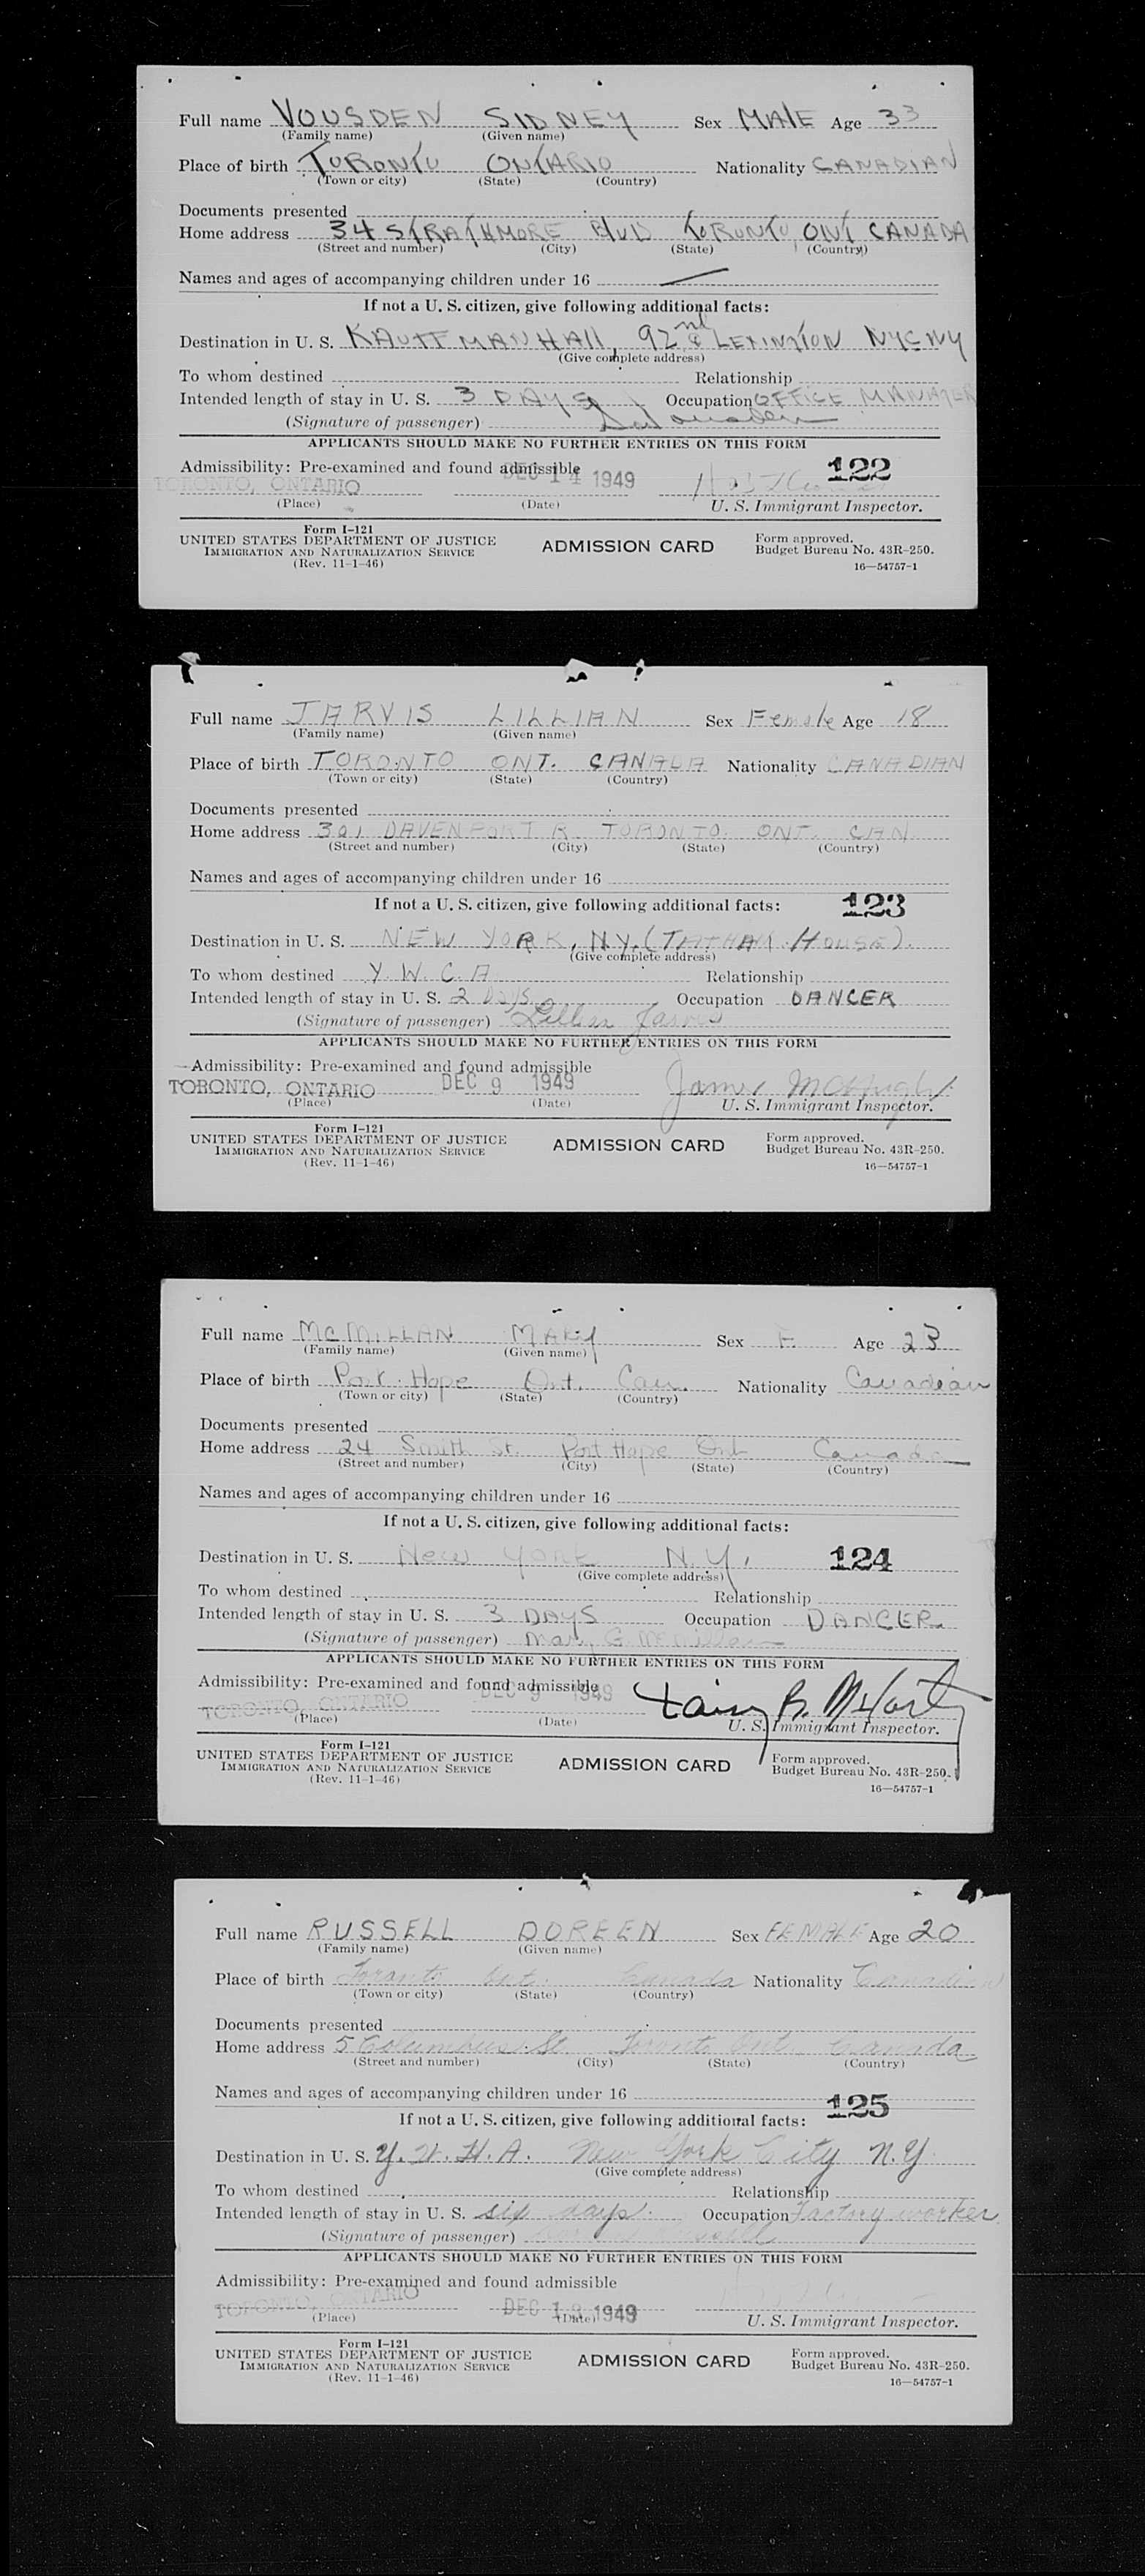 Full name VOUSDEN SIDNEY Sex MALE Age 33
(Family name) (Given name)
Place of birth TORONTO ONTARIO Nationality CANADIAN
(Town or city) (State) (Country)
Documents presented
Home address 34 STRATHMORE BLVD TORONTO, ONT CANADA
(Street and number) (City) (State) (Country)
Names and ages of accompanying children under 16 —
If not a U. S. citizen, give following additional facts:
Destination in U. S. KAUFFMAN HALL, 92nd & LEXINGTON NYC NY
(Give complete address)
To whom destined Relationship
Intended length of stay in U. S. 3 DAYS Occupation OFFICE MANAGER
(Signature of passenger) S. Vousden
APPLICANTS SHOULD MAKE NO FURTHER ENTRIES ON THIS FORM
Admissibility: Pre-examined and found admissible 122
TORONTO, ONTARIO DEC 14 1949
(Place) (Date) U. S. Immigrant Inspector.
Form I-121
UNITED STATES DEPARTMENT OF JUSTICE ADMISSION CARD Form approved.
IMMIGRATION AND NATURALIZATION SERVICE Budget Bureau No. 43R-250.
(Rev. 11-1-46) 16—54757-1
Full name JARVIS LILLIAN Sex Female Age 18
(Family name) (Given name)
Place of birth TORONTO ONT. CANADA Nationality CANADIAN
(Town or city) (State) (Country)
Documents presented
Home address 301 DAVENPORT R. TORONTO. ONT. CAN
(Street and number) (City) (State) (Country)
Names and ages of accompanying children under 16
If not a U. S. citizen, give following additional facts: 123
Destination in U. S. NEW YORK, N.Y. (TATHAM HOUSE).
(Give complete address)
To whom destined Y. W. C. A Relationship
Intended length of stay in U. S. 2 Days Occupation DANCER
(Signature of passenger) Lillian Jarvis
APPLICANTS SHOULD MAKE NO FURTHER ENTRIES ON THIS FORM
Admissibility: Pre-examined and found admissible
TORONTO, ONTARIO DEC 9 1949 James McHugh
(Place) (Date) U. S. Immigrant Inspector.
Form I-121
UNITED STATES DEPARTMENT OF JUSTICE ADMISSION CARD Form approved.
IMMIGRATION AND NATURALIZATION SERVICE Budget Bureau No. 43R-250.
(Rev. 11-1-46) 16—54757-1
Full name MCMILLAN MARY Sex F. Age 23
(Family name) (Given name)
Place of birth Port Hope Ont. Can. Nationality Canadian
(Town or city) (State) (Country)
Documents presented
Home address 24 Smith St. Port Hope Ont Canada
(Street and number) (City) (State) (Country)
Names and ages of accompanying children under 16
If not a U. S. citizen, give following additional facts:
Destination in U. S. New York N.Y. 124
(Give complete address)
To whom destined Relationship
Intended length of stay in U. S. 3 DAYS Occupation DANCER.
(Signature of passenger) Mary G. McMillan
APPLICANTS SHOULD MAKE NO FURTHER ENTRIES ON THIS FORM
Admissibility: Pre-examined and found admissible
TORONTO, ONTARIO DEC 9 1949
(Place) (Date) U. S. Immigrant Inspector.
Form I-121
UNITED STATES DEPARTMENT OF JUSTICE ADMISSION CARD Form approved.
IMMIGRATION AND NATURALIZATION SERVICE Budget Bureau No. 43R-250.
(Rev. 11-1-46) 16—54757-1
Full name RUSSELL DOREEN Sex FEMALE Age 20
(Family name) (Given name)
Place of birth Toronto Ont. Canada Nationality Canadian
(Town or city) (State) (Country)
Documents presented
Home address 5 Columbus St. Toronto Ont. Canada
(Street and number) (City) (State) (Country)
Names and ages of accompanying children under 16
If not a U. S. citizen, give following additional facts: 125
Destination in U. S. Y. W. H. A. New York City N.Y.
(Give complete address)
To whom destined Relationship
Intended length of stay in U. S. six days. Occupation Factory worker
(Signature of passenger) Doreen Russell
APPLICANTS SHOULD MAKE NO FURTHER ENTRIES ON THIS FORM
Admissibility: Pre-examined and found admissible
TORONTO, ONTARIO DEC 1949
(Place) (Date) U. S. Immigrant Inspector.
Form I-121
UNITED STATES DEPARTMENT OF JUSTICE ADMISSION CARD Form approved.
IMMIGRATION AND NATURALIZATION SERVICE Budget Bureau No. 43R-250.
(Rev. 11-1-46) 16—54757-1